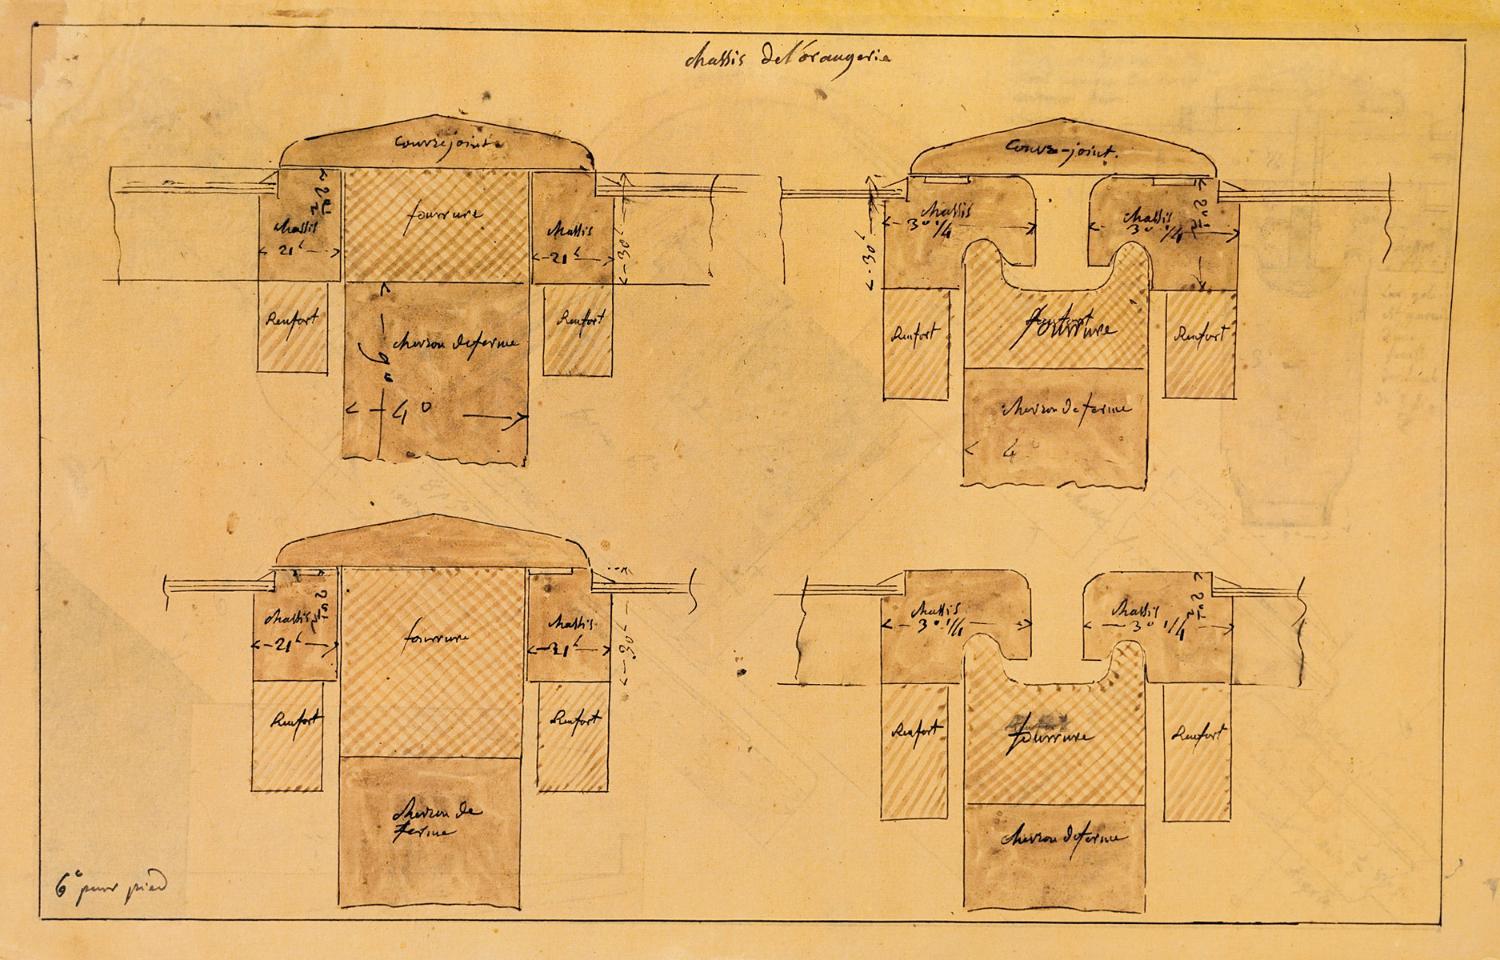 chassis de l'orangerie
Couvrejoint
fourrure
chassis
21ˡ
chassis
21ˡ
30ˡ
Renfort
Renfort
chevron de ferme
9°
4°
Couvre-joint.
chassis
3° 1/4
chassis
3° 1/4
30ˡ
fourrure
Renfort
Renfort
chevron de ferme
4°
chassis
21ˡ
fourrure
chassis
21ˡ
30ˡ
Renfort
Renfort
chevron de
ferme
chassis
3° 1/4
chassis
3° 1/4
fourrure
Renfort
Renfort
chevron de ferme
6° pour pied